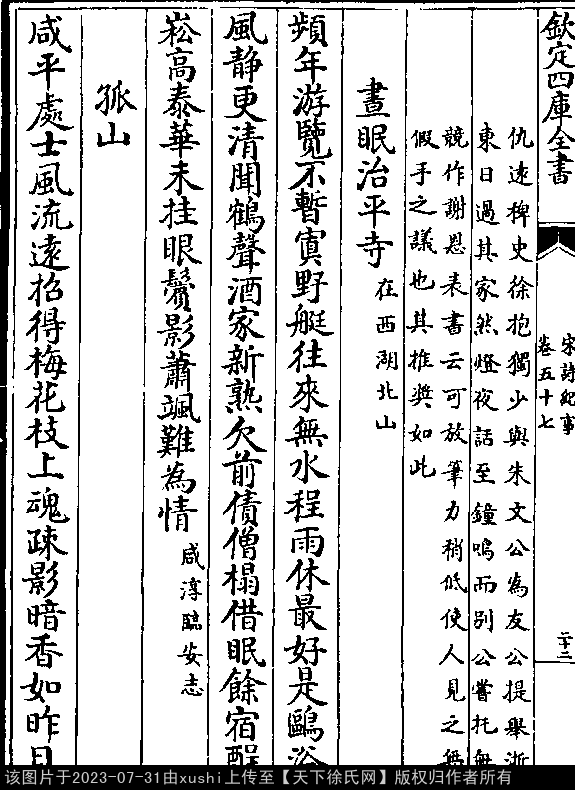 欽定四庫全書
宋詩紀事
卷五十七
二十三
仇逺稗史徐抱獨少與朱文公為友公提舉浙
東日過其家然燈夜話至鐘鳴而别公嘗托無
競作謝恩表書云可放筆力稍低使人見之無
假手之議也其推奬如此
晝眠治平寺在西湖北山
頻年游覽不暫寘野艇往來無水程雨休最好是鷗浴
風静更清聞鶴聲酒家新熟欠前債僧榻借眠餘宿酲
崧髙泰華未挂眼鬢影蕭颯難為情咸淳臨安志
孤山
咸平處士風流逺招得梅花枝上魂疎影暗香如昨日
该图片于2023-07-31由xushi上传至【天下徐氏网】版权归作者所有